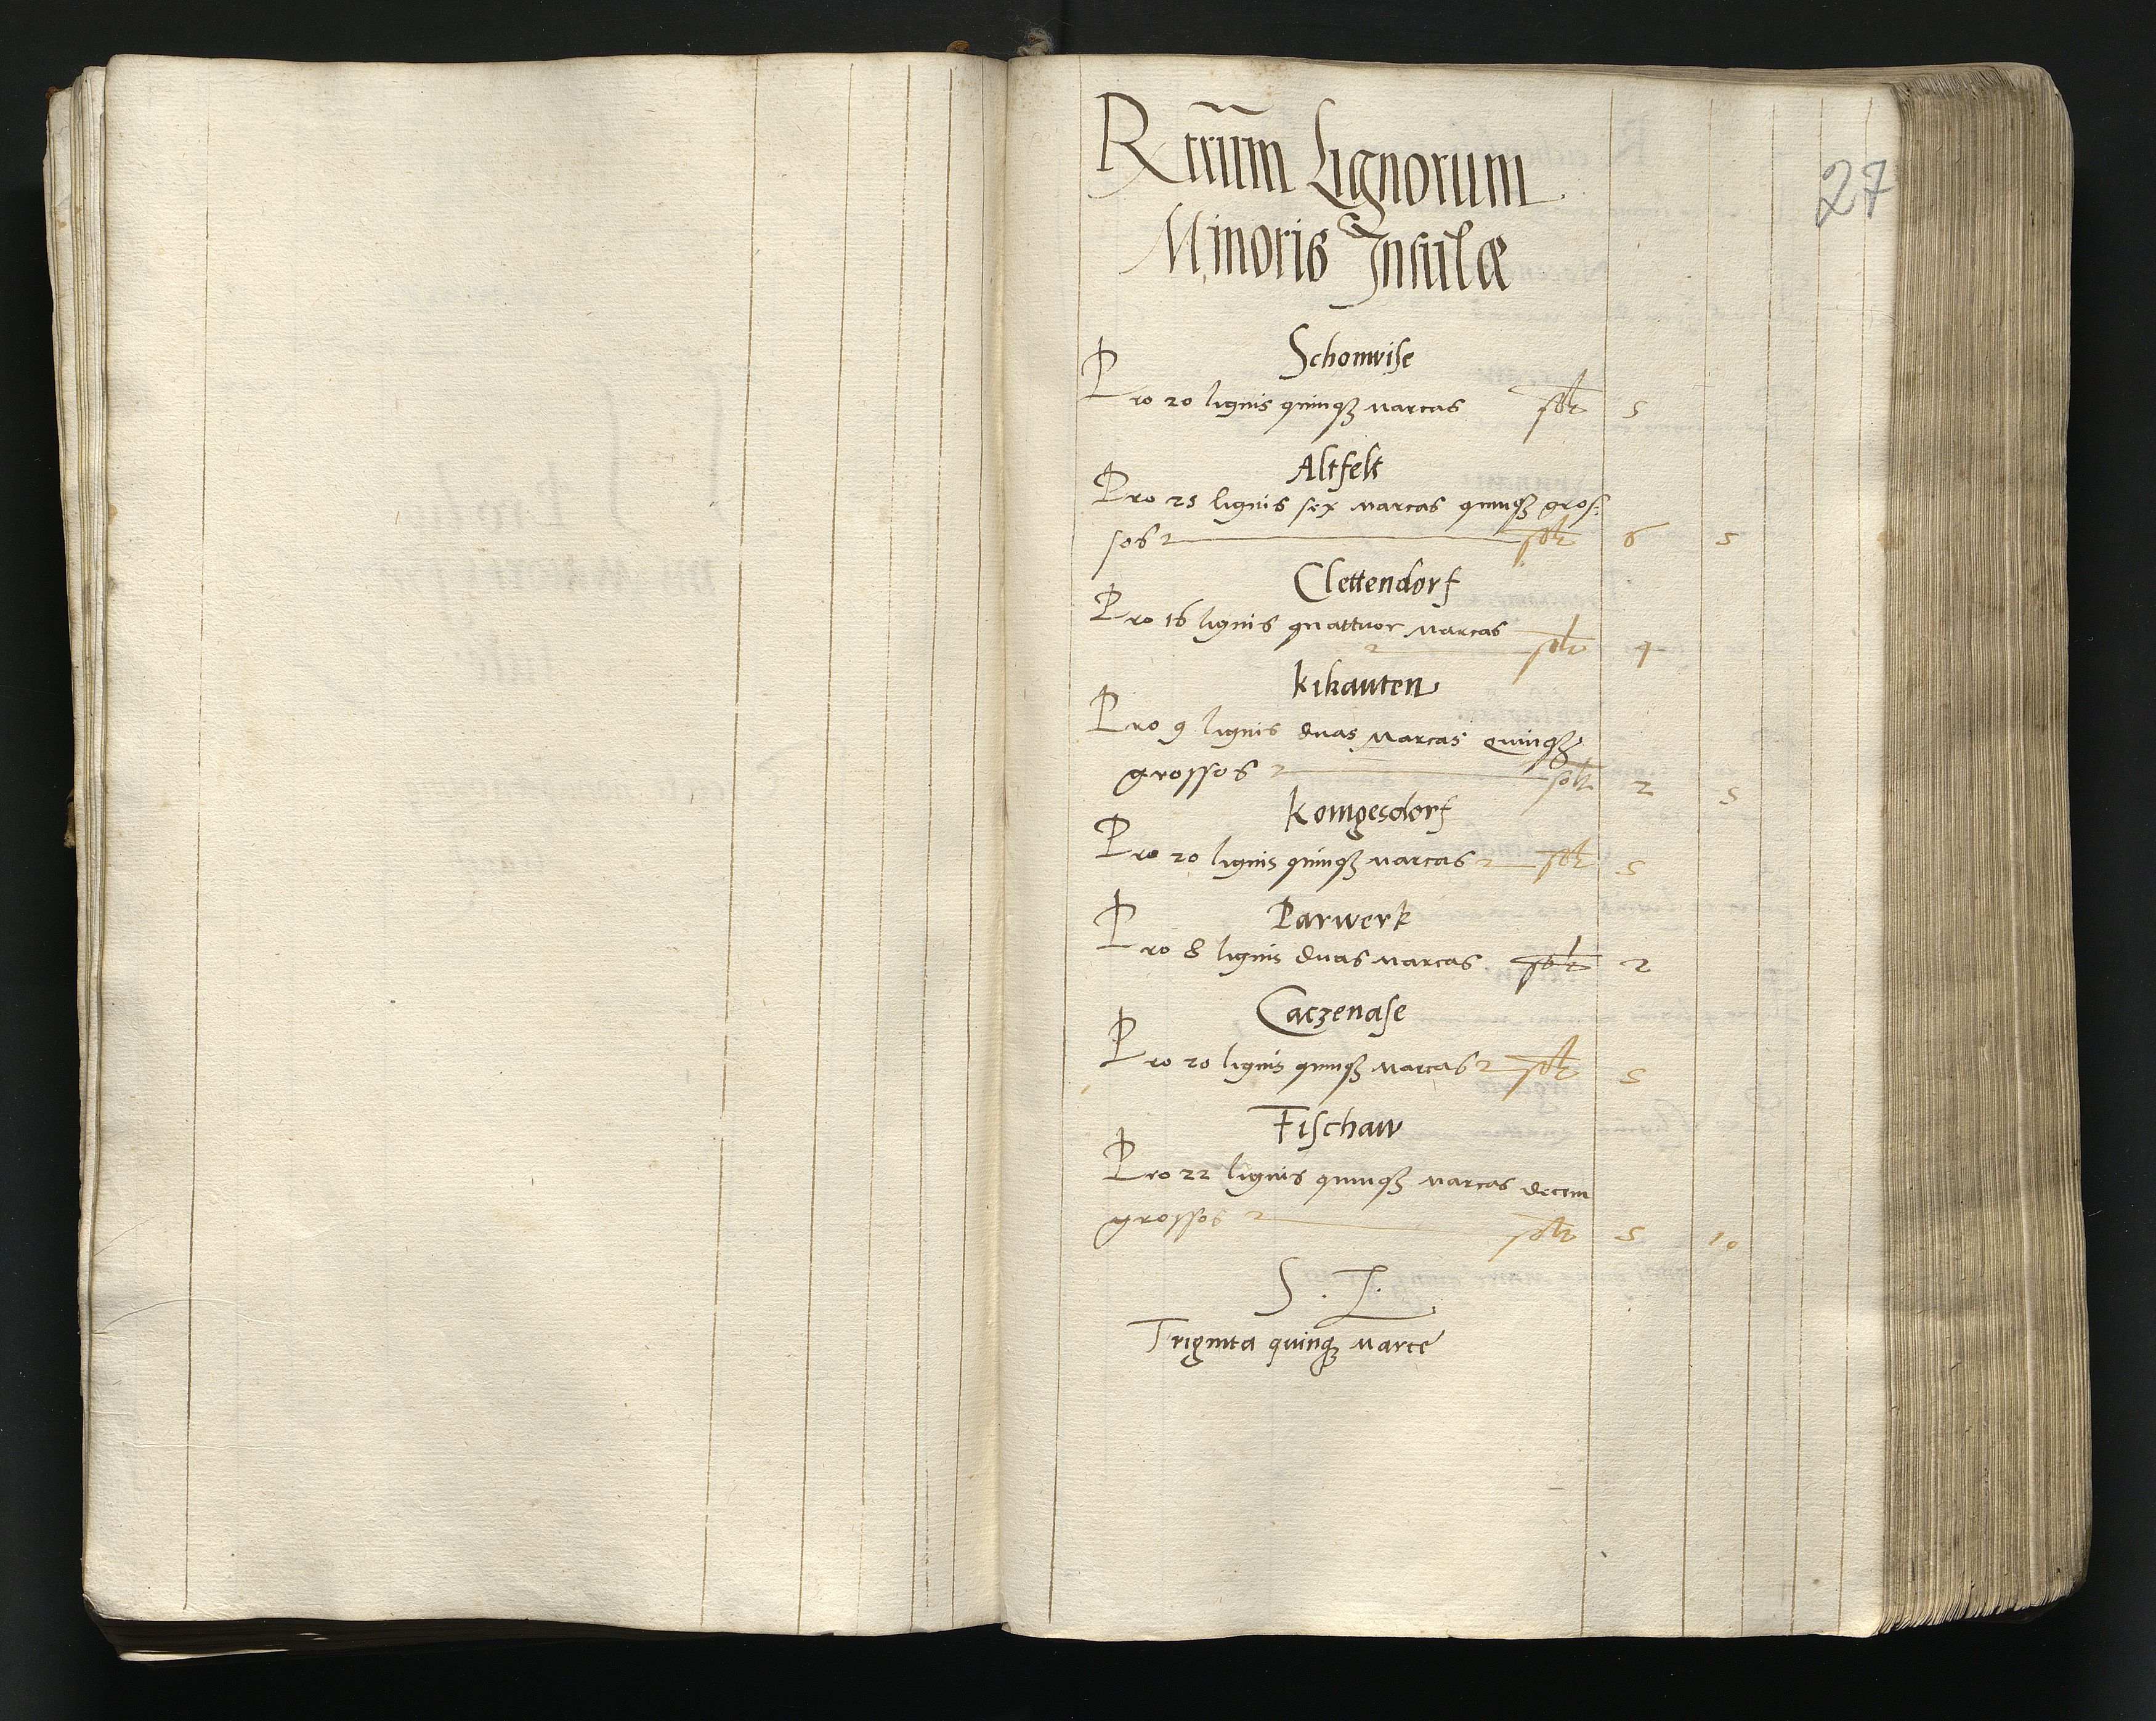 27
Rtrum Lignorum
Minoris Insulæ
Schonwise
Pro 20 lignis quinqȝ marcas solt 5
Altfelt
Pro 25 lignis sex marcas quinqȝ gros:
sos solt 6 5
Clettendorf
Pro 16 lignis quattuor marcas solt 4
Kikauten
Pro 9 lignis duas marcas quinqȝ
grossos solt 2 5
Konigesdorf
Pro 20 lignis quinqȝ marcas solt 5
Parwerk
Pro 8 lignis duas marcas solt 2
Caczenase
Pro 20 lignis quinqȝ marcas solt 5
Fischaw
Pro 22 lignis quinqȝ marcas decem
grossos solt 5 10
Triginta quinqȝ marce